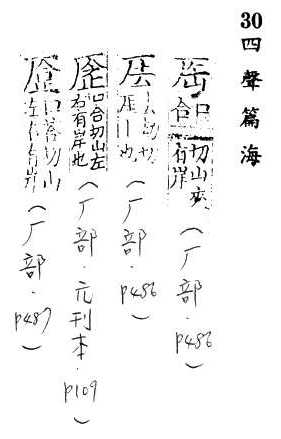 30 四聲篇海
口合切山夾有岸（厂部．p486）
（厂部．p486）
口合切山左右有岸也（厂部．元刊本．p109）
口答切山左右有岸（厂部．p487）